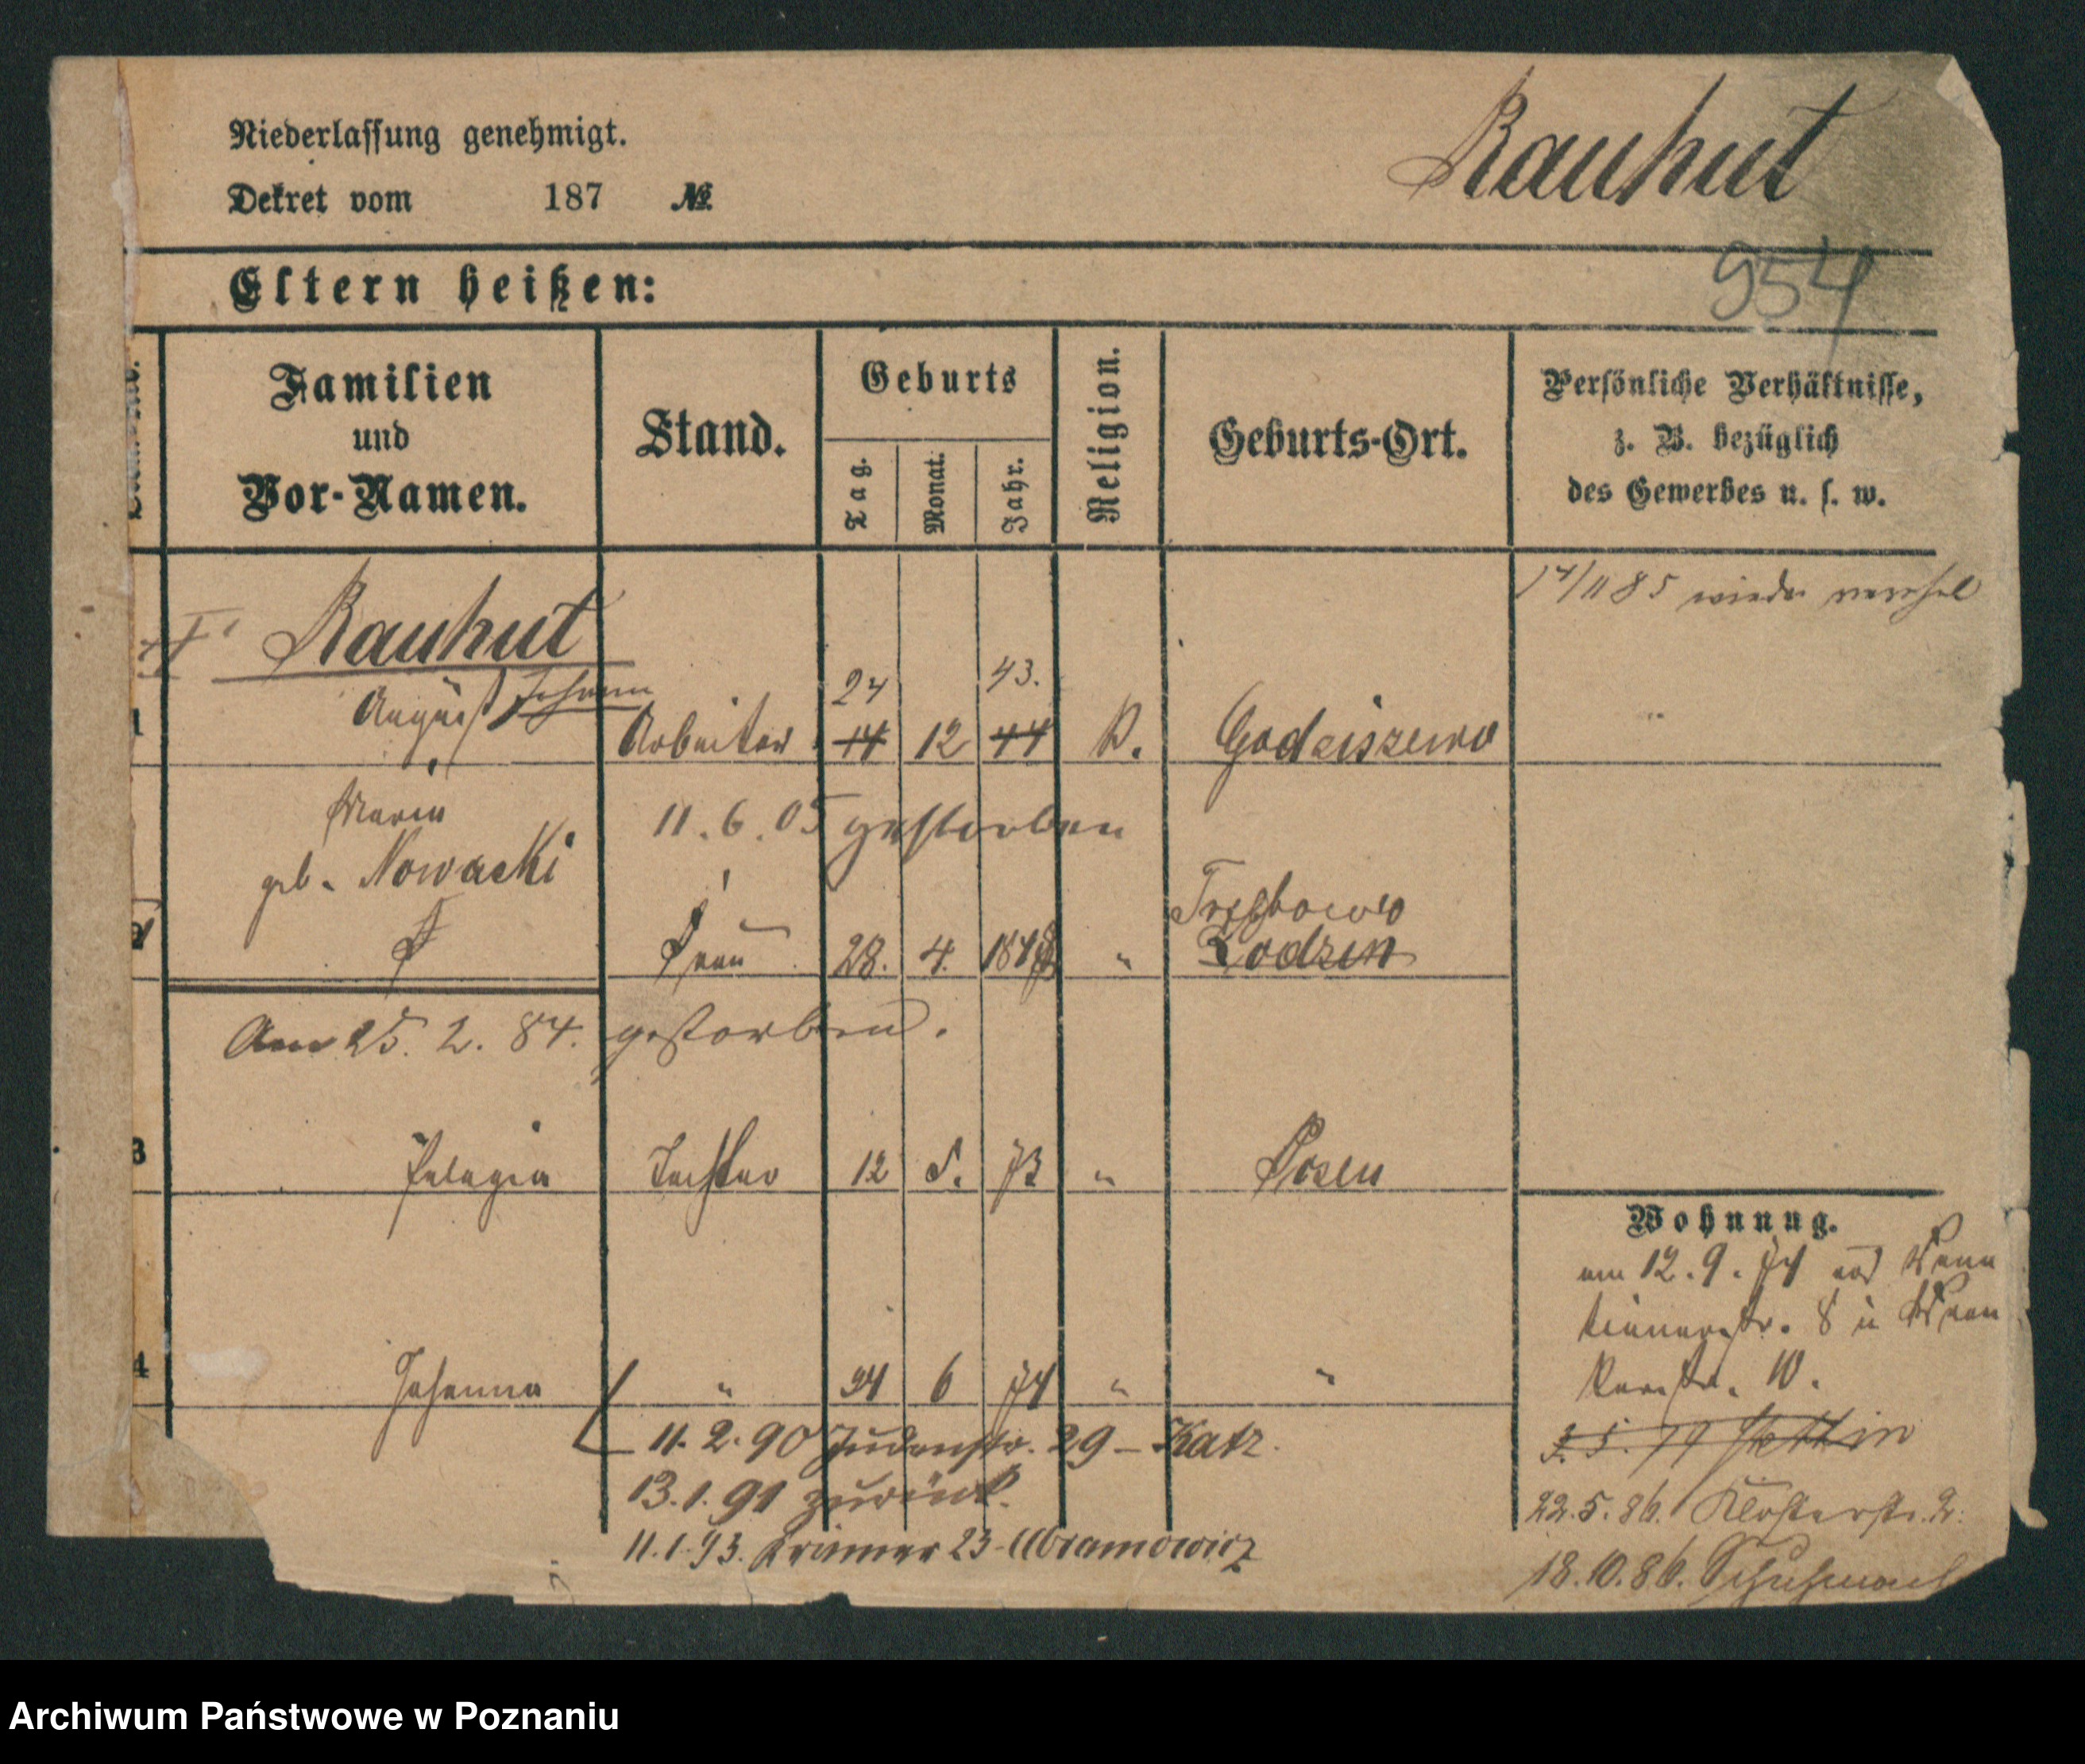 Niederlassung genehmigt.
Rauhut
Dekret vom 187 №
954
Eltern heißen:
Familien und Vor-Namen.
Stand.
Geburts
Tag.
Monat.
Jahr.
Religion.
Geburts-Ort.
Persönliche Verhältnisse,
z. B. bezüglich
des Gewerbes u. s. w.
14/11 85 wieder
Rauhut
24 43.
1 August Johann Arbeiter 14 12 44 K. Godziszewo
Maria 11.6.05 gestorben
geb. Nowacki
2 Frau 28. 4. " Rodzen
Am 25. 2. 84. gestorben.
3 Pelagia Tochter 12 5. 73 " Posen
Wohnung.
am 12.9.74 auf
8 u
4 Johanna " 24 6 74 " "
str. 10.
11.2.90 Judenstr. 29 – Katz.
3.5.79 Stettin
13.1.91 zurück.
22.5.86. Klosterstr. 2.
11.1.93. Krämer 23 Abramowicz
18.10.86. Schuhmach
Archiwum Państwowe w Poznaniu